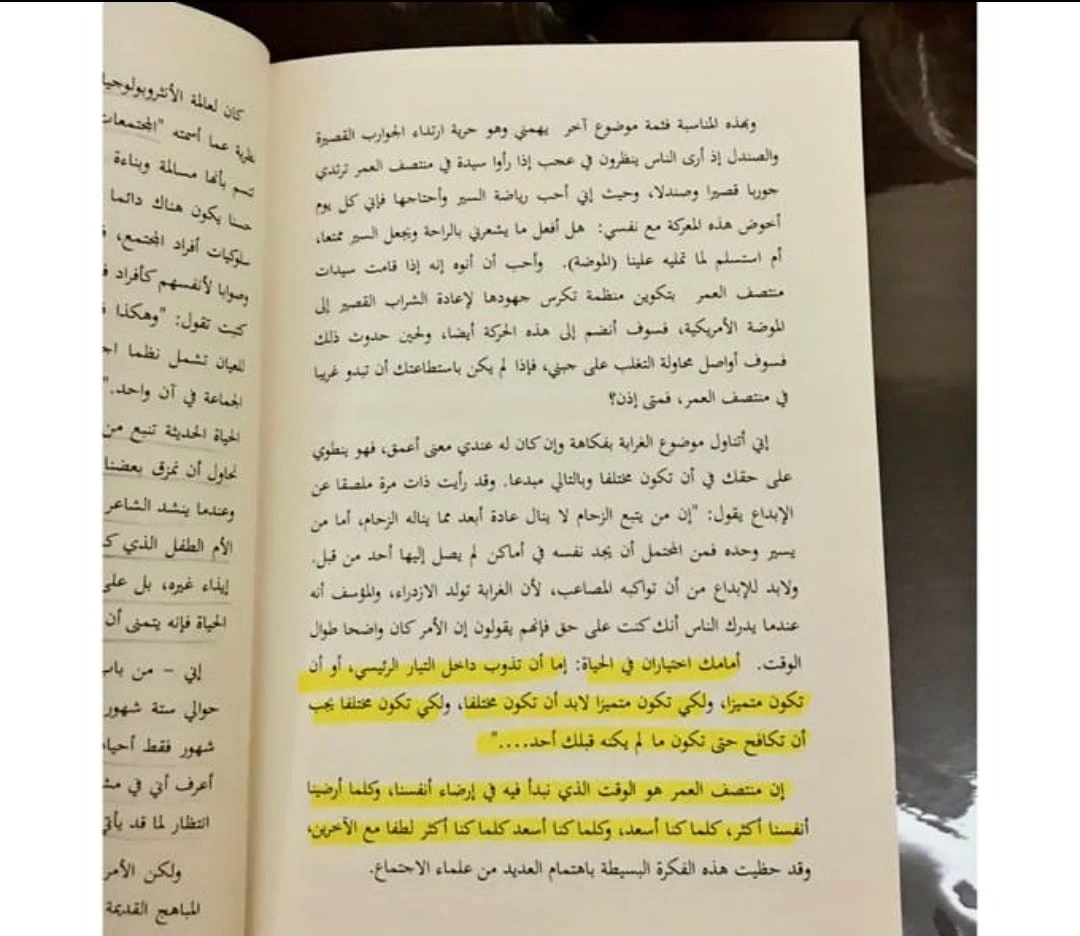 وبهذه المناسبة فثمة موضوع آخر يهمني وهو حرية ارتداء الجوارب القصيرة
والصندل إذ أرى الناس ينظرون في عجب إذا رأوا سيدة في منتصف العمر ترتدي
جوربا قصيرا وصندلا، وحيث إني أحب رياضة السير وأحتاجها فإني كل يوم
أخوض هذه المعركة مع نفسي: هل أفعل ما يشعرني بالراحة ويجعل السير ممتعا،
أم استسلم لما تمليه علينا (الموضة). وأحب أن أنوه إنه إذا قامت سيدات
منتصف العمر بتكوين منظمة تكرس جهودها لإعادة الشراب القصير إلى
الموضة الأمريكية، فسوف أنضم إلى هذه الحركة أيضا، ولحين حدوث ذلك
فسوف أواصل محاولة التغلب على جبني، فإذا لم يكن باستطاعتك أن تبدو غريبا
في منتصف العمر، فمتى إذن؟
إني أتناول موضوع الغرابة بفكاهة وإن كان له عندي معنى أعمق، فهو ينطوي
على حقك في أن تكون مختلفا وبالتالي مبدعا. وقد رأيت ذات مرة ملصقا عن
الإبداع يقول: "إن من يتبع الزحام لا ينال عادة أبعد مما يناله الزحام، أما من
يسير وحده فمن المحتمل أن يجد نفسه في أماكن لم يصل إليها أحد من قبل.
ولابد للإبداع من أن تواكبه المصاعب، لأن الغرابة تولد الازدراء، والمؤسف أنه
عندما يدرك الناس أنك كنت على حق فإنهم يقولون إن الأمر كان واضحا طوال
الوقت. أمامك اختياران في الحياة: إما أن تذوب داخل التيار الرئيسي، أو أن
تكون متميزا، ولكي تكون متميزا لابد أن تكون مختلفا، ولكي تكون مختلفا يجب
أن تكافح حتى تكون ما لم يكنه قبلك أحد...."
إن منتصف العمر هو الوقت الذي نبدأ فيه في إرضاء أنفسنا، وكلما أرضينا
أنفسنا أكثر، كلما كنا أسعد، وكلما كنا أسعد كلما كنا أكثر لطفا مع الآخرين،
وقد حظيت هذه الفكرة البسيطة باهتمام العديد من علماء الاجتماع.
كان لعالمة الأنثروبولوجيا
نظرية عما أسمته "المجتمعات
تتسم بأنها مسالمة وبناءة
حسنا يكون هناك دائما
سلوكيات أفراد المجتمع،
وصوابا لأنفسهم كأفراد
كتبت تقول: "وهكذا
للعيان تشمل نظما
الجماعة في آن واحد."
الحياة الحديثة تنبع من
نحاول أن نمزق بعضنا
وعندما ينشد الشاعر
الأم الطفل الذي
إيذاء غيره، بل على
الحياة فإنه يتمنى أن
إني – من باب
حوالي ستة شهور
شهور فقط
أعرف أني في
انتظار لما قد يأتي
ولكن الأمر
المباهج القديمة